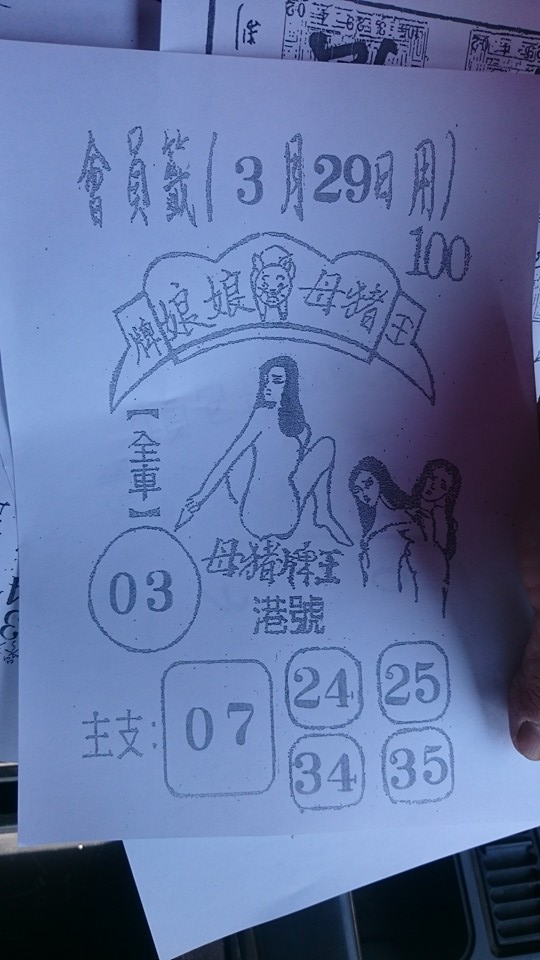 會員籤(3月29日用)
100
牌娘娘母豬王
【全車】
03
母豬牌王
港號
主支:
07
24 25
34 35